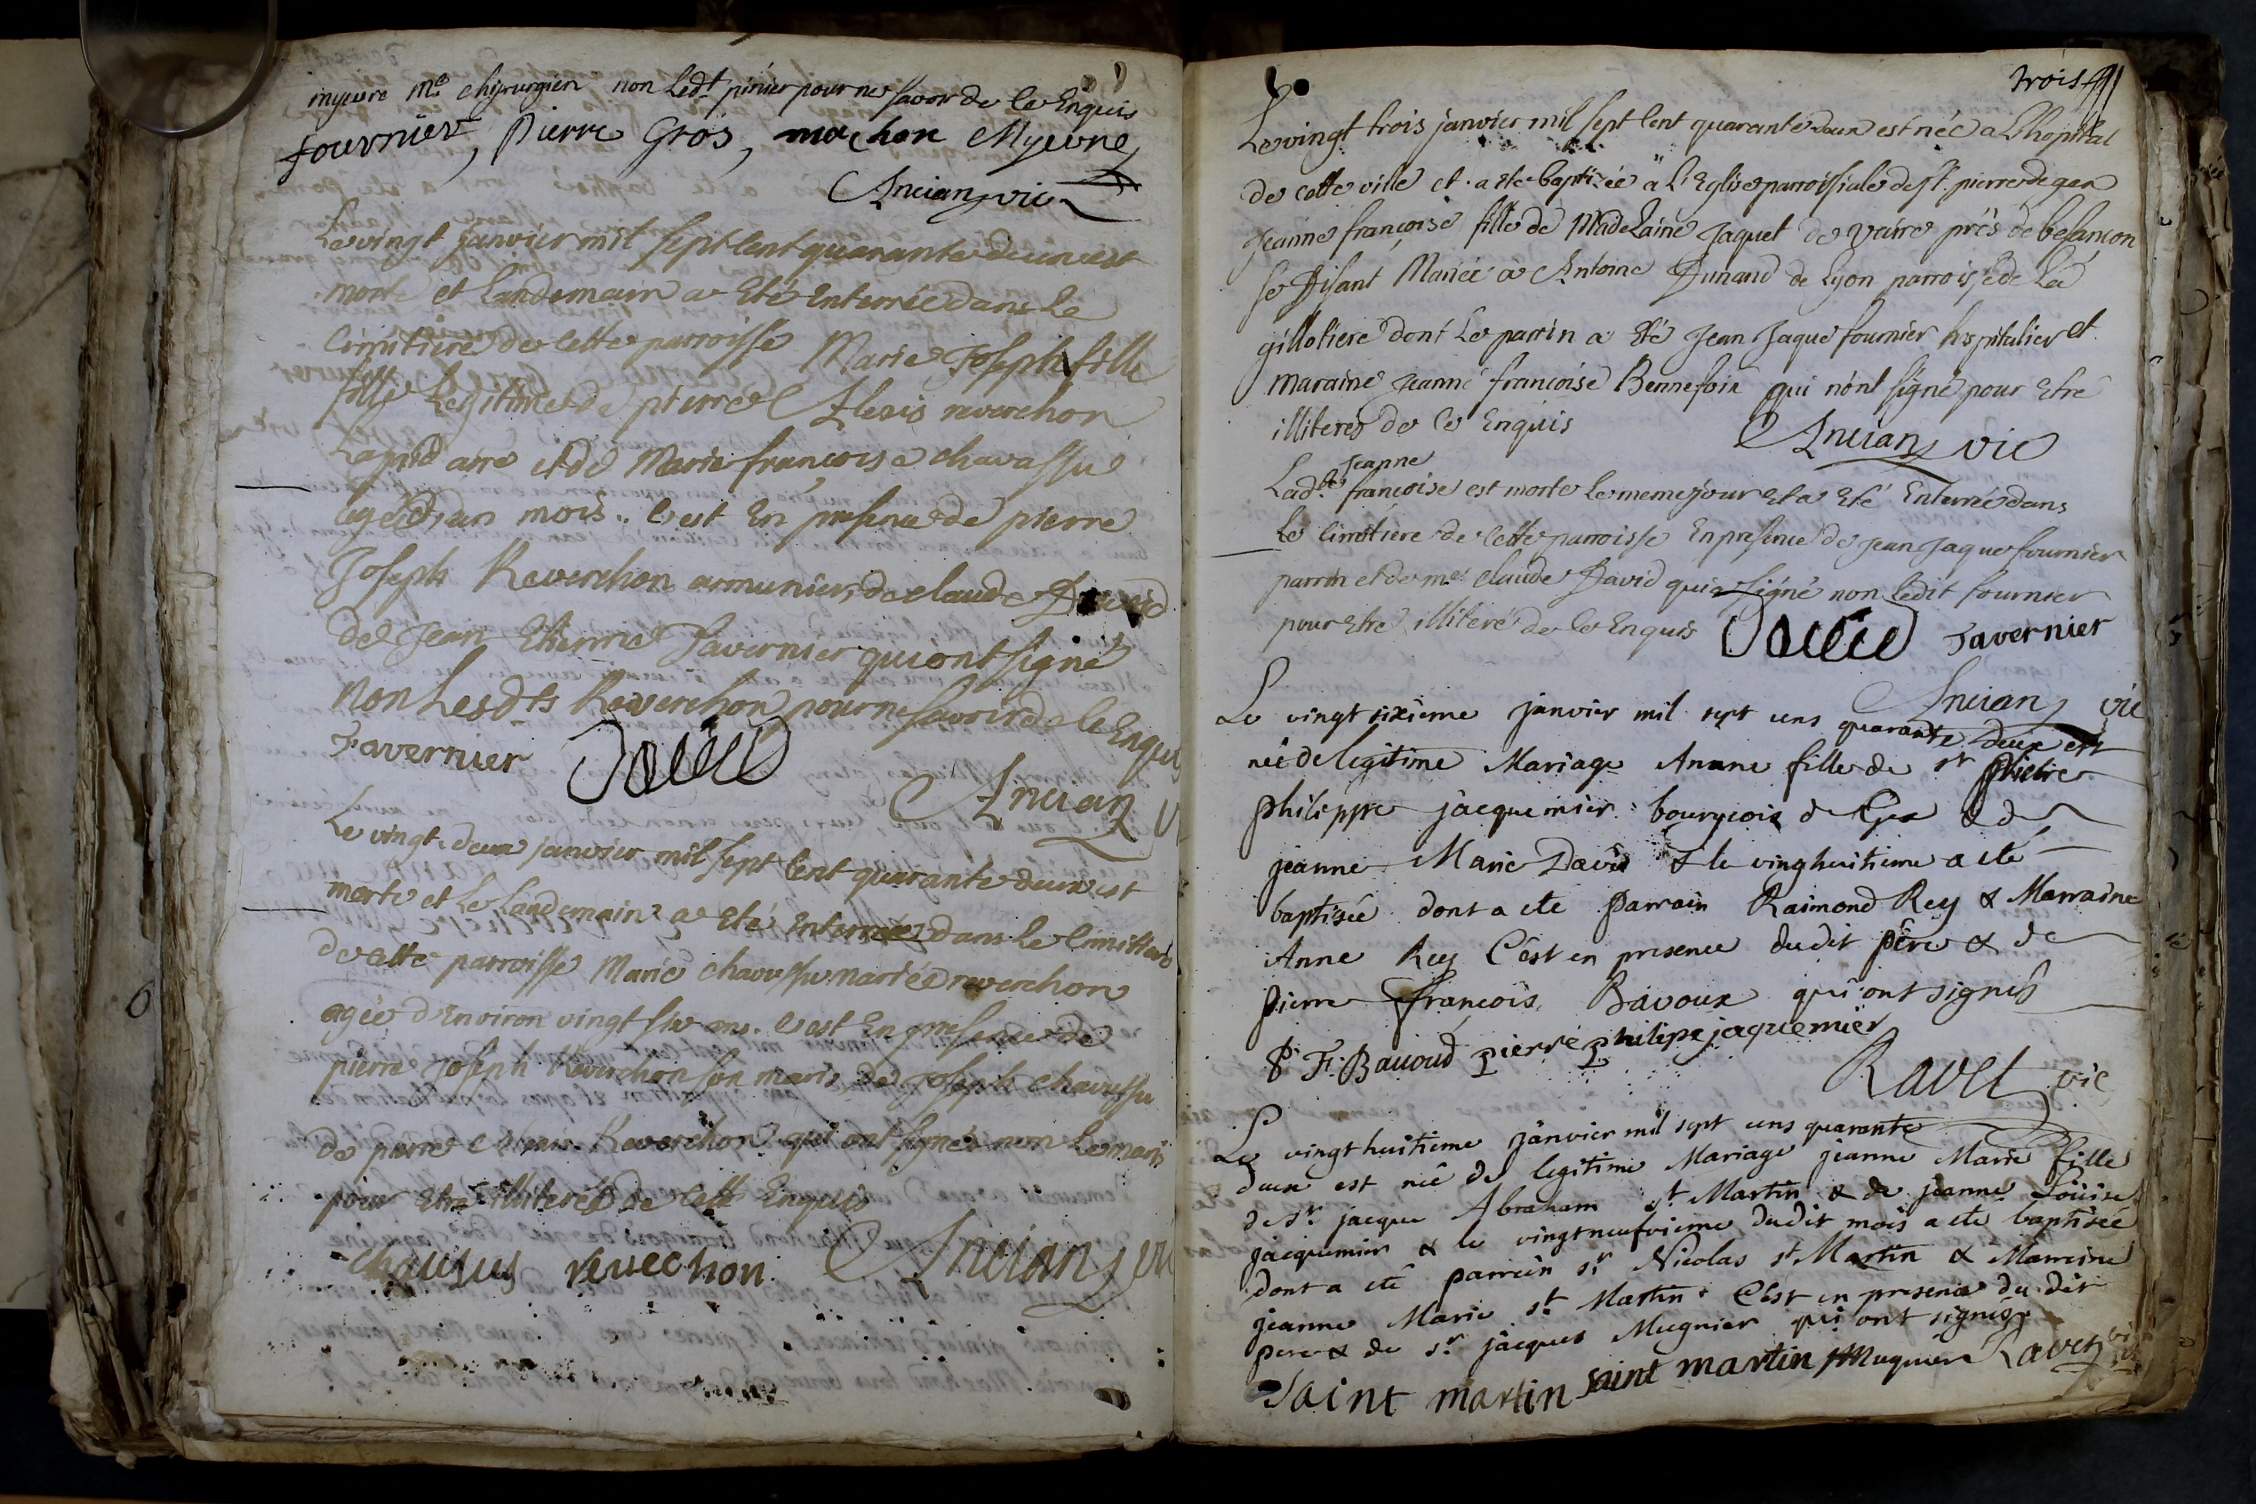 myevre Me chyrurgien non ledt pinier pour ne savoir de ce Enquis
fournier, Pierre Gros, machon Myevre
Ancian vic
Le vingt janvier mil sept cent quarante deux est
morte et landemain a Eté Enterrée dans le
cimitiere de cette parroisse Marie Joseph fille
fille legitime de pierre Alexis reverchon
lapidaire et de Marie françoise chavassu
agée d'un mois. c'est En presence de pierre
Joseph Reverchon armunier, de claude David
de Jean Etienne Tavernier qui ont signé
non lesdts Reverchon pour ne savoir de ce Enquis
Tavernier David
Ancian v
Le vingt deux janvier mil sept cent quarante deux est
morte et le landemain a Eté Enterrée dans le cimittiere
de cette parroisse Marie chavassu mariée reverchon
agée d'Environ vingt six ans. c'est En presence de
pierre Joseph Reverchon son maris de Joseph chavassu
de pierre Reverchon qui ont signés non le maris
pour Etre illiteré de cette Enquis
chausus reuechon Ancian vic
trois
Le vingt trois janvier mil sept cent quarante deux est née a L'hopital
de cette ville et a ete baptisée à L'Eglise parroissiale de st. pierre de gex
Jeanne françoise fille de Madelaine Jaquet de vaire près de besançon
se Disant Mariée à Antoine Dunand de Lyon parroisse de La
gillotiere dont le parin a Eté Jean Jaque fournier hospitalier et
maraine Jeanne françoise Bennefoix qui n'ont signé pour Etre
illiteres de ce Enquis Ancian vic
Jeanne
Ladte françoise est morte le meme jour et a Eté Enterrée dans
le cimetiere de cette parroisse En presence de jean Jaque fournier
parrin et de me claude David qui a signé non ledit fournier
pour Etre illiteré de ce Enquis David Tavernier
Ancian vic
Le vingt sixieme janvier mil sept cens quarante deux est
née de legitime Mariage Anne fille de sr pierre
philippe jacquemier bourgeois de Gex & de
jeanne Marie David & le vinghuitieme a eté
baptisée dont a eté parrain Raimond Rey & Marraine
Anne Rey C'est en presence dudit père & de
pierre françois Bavoux qui ont signés
P. F. Bauoud pierre philipe jaquemier
Ravet vic
Le vingt huitieme janvier mil sept cens quarante
deux est née de legitime Mariage jeanne Marie fille
de sr jacque Abraham st Martin & de jeanne Loüise
jacquemier & le vingtneufvieme dudit mois a eté baptisée
dont a eté parrein sr Nicolas st Martin & Marreine
jeanne Marie st Martin. C'est en presence du dit
pere & de sr jacques Mugnier qui ont signés
Saint martin saint martin Mugnier Ravet vic